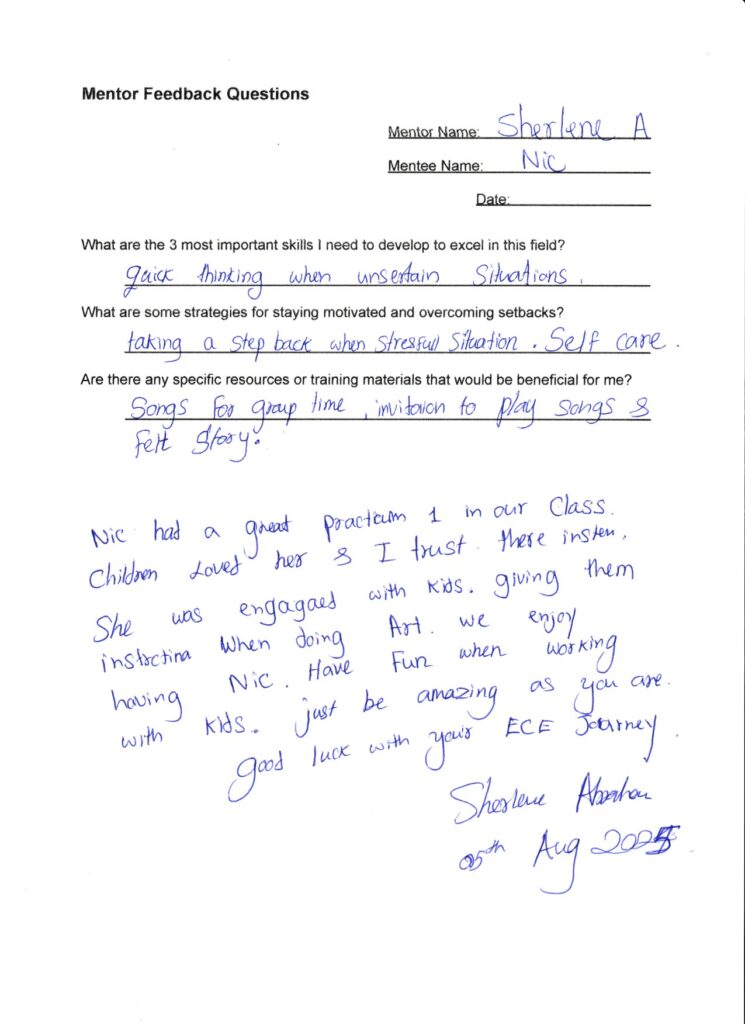 Mentor Feedback Questions
Mentor Name: Sherlene A
Mentee Name: Nic
Date:
What are the 3 most important skills I need to develop to excel in this field?
quick thinking when unsertain situations.
What are some strategies for staying motivated and overcoming setbacks?
taking a step back when stressfull situation. Self care.
Are there any specific resources or training materials that would be beneficial for me?
Songs for group time, invitaion to play songs &
felt story.
Nic had a great practicum 1 in our class.
Children loved her & I trust there insten.
She was engagaed with kids. giving them
instrctina when doing Art. we enjoy
having Nic. Have Fun when working
with kids. just be amazing as you are.
good luck with your ECE Journey.
Sherlene
05th Aug 2025